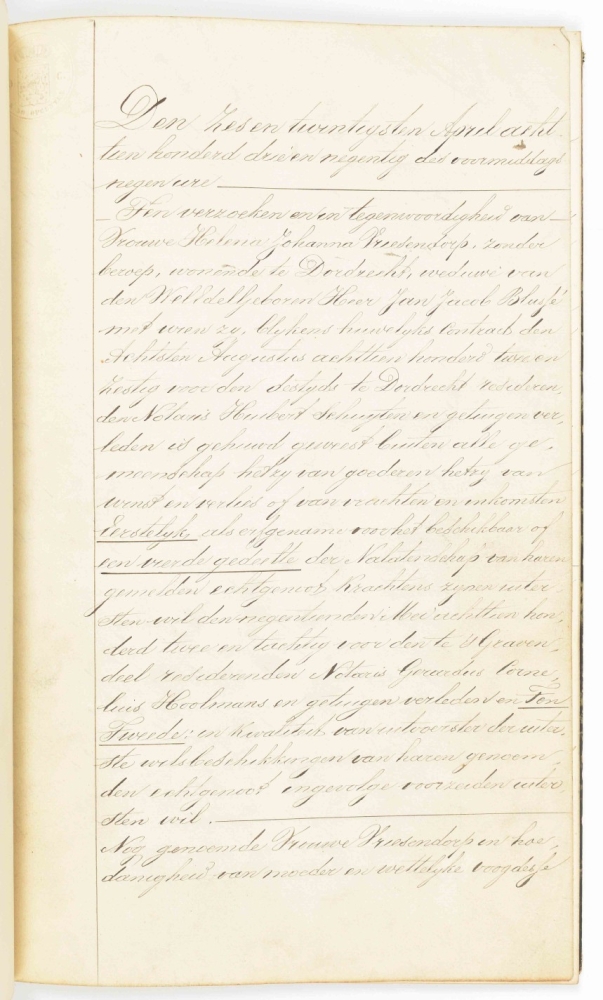 Den zesentwintigsten April acht-
tien honderd drieen negentig des voormiddags
negen ure
Ten verzoeken en in tegenwoordigheid van
Vrouwe Helena Johanna Vriesendorp, zonder
beroep, wonende te Dordrecht, weduwe van
den WelEdelGeboren Heer Jan Jacob Blussé
met wien zy, blykens huwelyks contract den
Achtsten Augustus achttien honderd twee en
zestig voor den destyds te Dordrecht resideren,
den Notaris Huibert Schuyten en getuigen ver,
leden is gehuwd geweest buiten alle ge,
meenschap hetzy van goederen hetzy van
winst en verlies of van vruchten en inkomsten
Eerstelyk, als erfgename voor het beschikbaar of
een vierde gedeelte der Nalatenschap van haren
gemelden echtgenoot krachtens zynen uiter,
sten wil den negentienden Mei achttien hon,
derd twee en tachtig voor den te 's Graven,
deel resideerenden Notaris Gerardus Corne,
luis Hoolmans en getuigen verleden en Ten
Tweede: in kwaliteit van uitvoerster der uiter,
ste wilsbeschikkingen van haren genoem,
den echtgenoot ingevolge voorzeiden uiter,
sten wil.
Nog genoemde Vrouwe Vriesendorp in hoe,
danigheid van moeder en wettelyke voogdesse